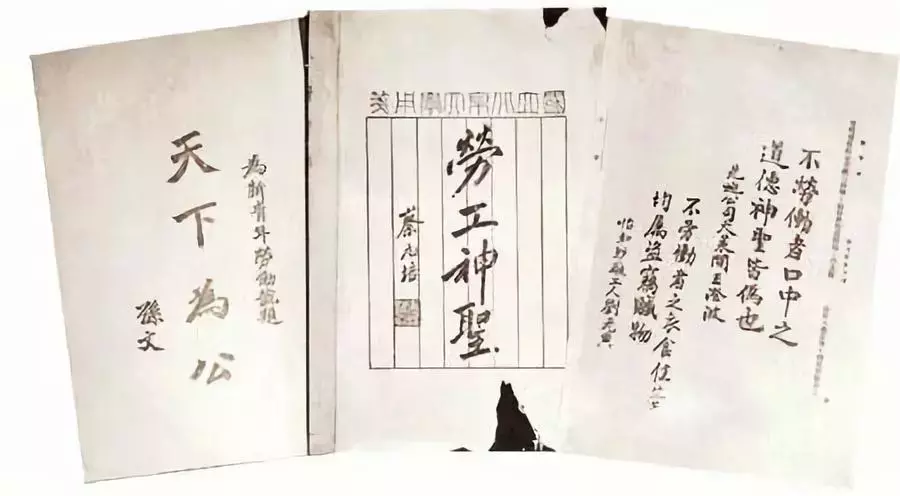 為新青年勞動號題
天下為公
孫文
國立北京大學用箋
勞工神聖
蔡元培
不勞働者口中之
道德神聖皆僞也
先施公司大菜間王澄波
不勞働者之衣食住等
均屬盜竊贓物
工人劉